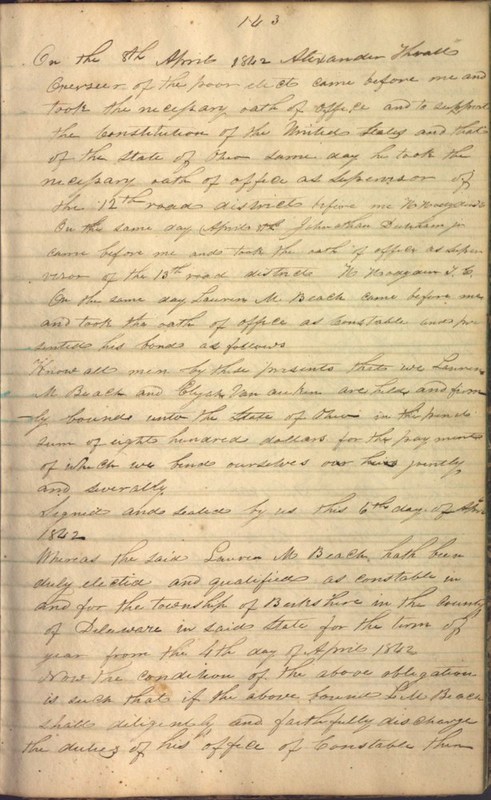 143
On the 8th April 1842 Alexander Thrall
Overseer of the poor elect came before me and
took the necessary oath of office and to support
the Constitution of the United States and that
of the State of Ohio same day he took the
necessary oath of office as supervisor of
the 12th road district before me
On the same day April 8th Johnathan Dunham jr
came before me and took the oath of office as super
visor of the 13th road district
On the same day Lauren M Beach came before me
and took the oath of office as Constable and pre
sented his bond as follows
Know all men by these presents that we Lauren
M Beach and Van are held and firm
ly bound unto the State of Ohio in the penal
sum of eight hundred dollars for the payment
of which we bind ourselves our heirs jointly
and severally
Signed and sealed by us this 6th day of Apr
1842
Whereas the said Lauren M Beach hath been
duly elected and qualified as constable in
and for the township of Berkshire in the County
of Delaware in said State for the term of
year from the 4th day of April 1842
Now the condition of the above obligation
is such that if the above bound L M Beach
shall diligently and faithfully discharge
the duties of his office of Constable then